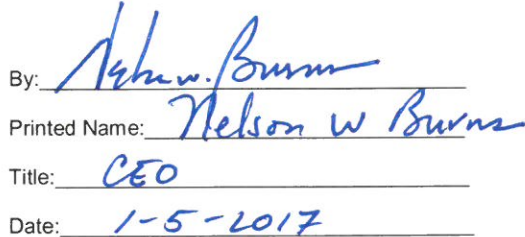 By: Nelson W. Burns
Printed Name: Nelson W Burns
Title: CEO
Date: 1-5-2017